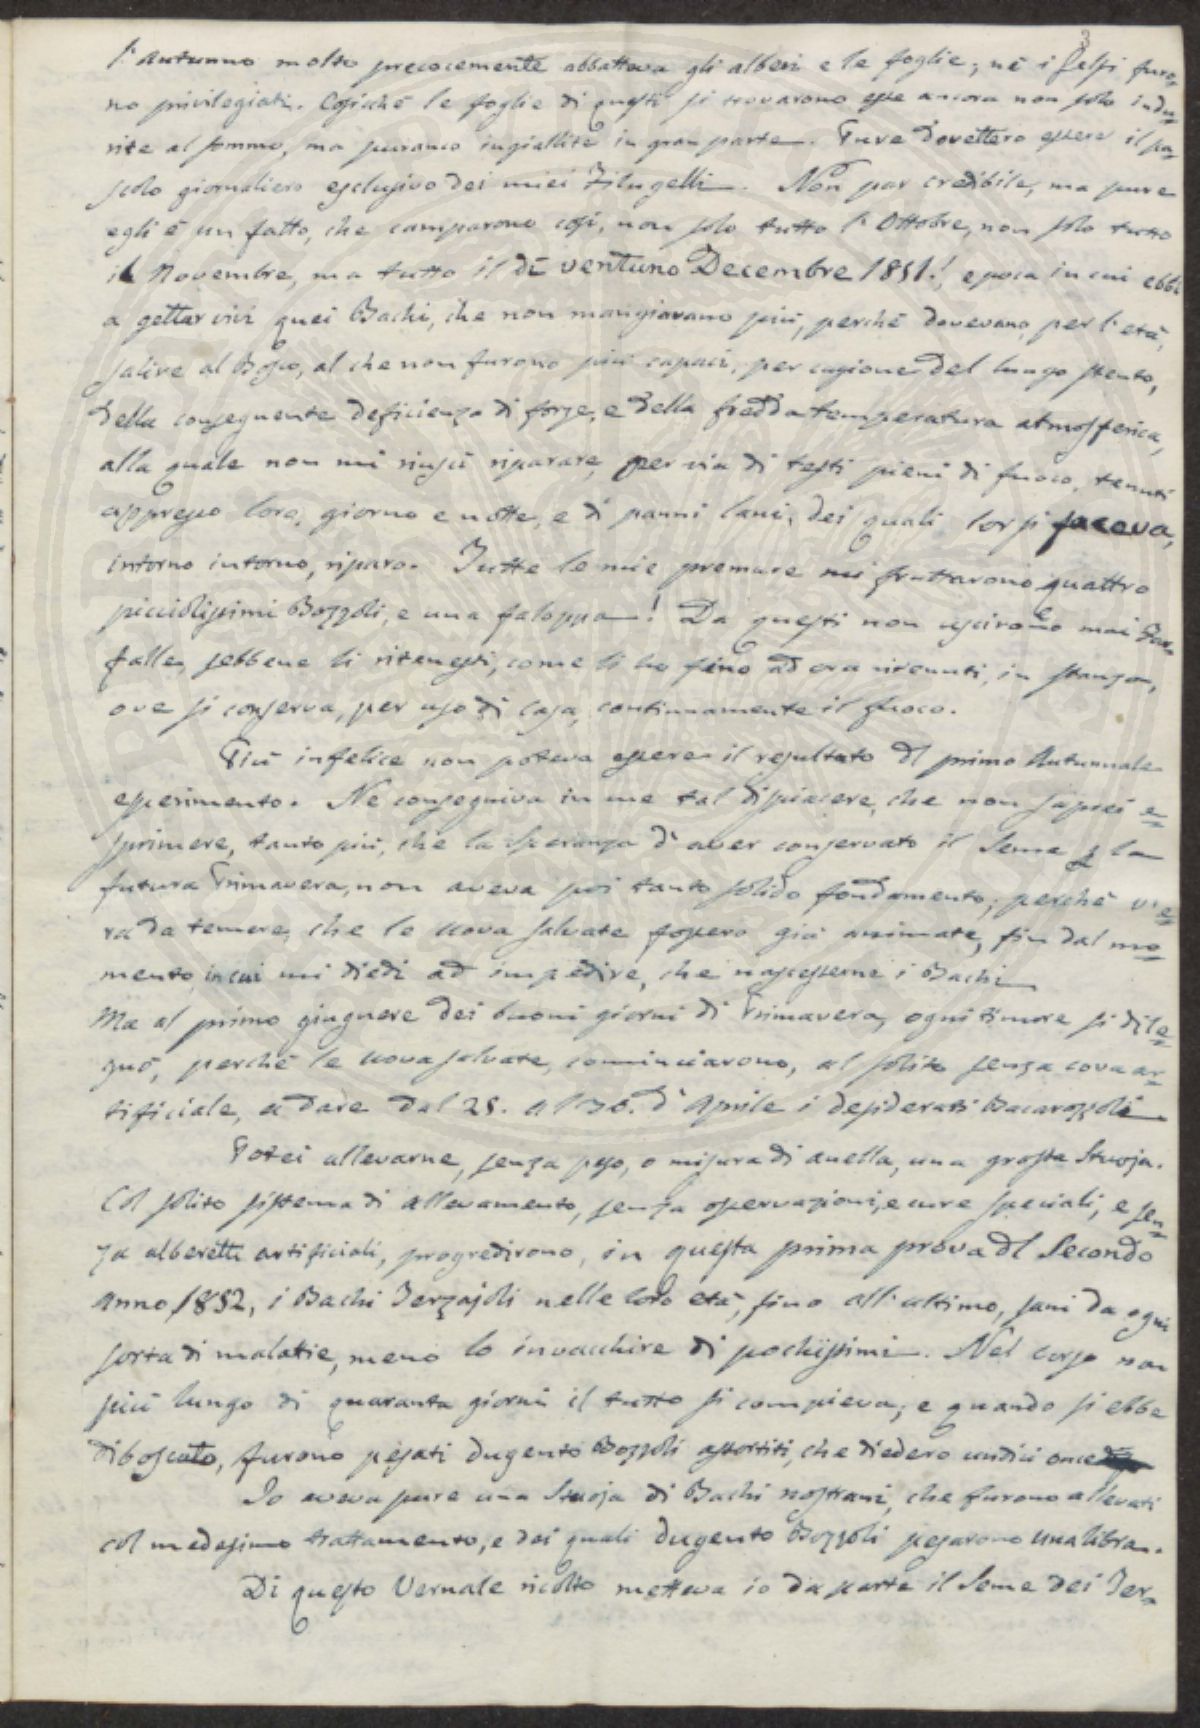 3
l'Autunno molto precocemente abbatteva gli alberi e le foglie; nè i Gelsi furo-
no privilegiati. Cosichè le foglie di questi si trovarono esse ancora non solo indu-
rite al sommo, ma puranco ingiallite in gran parte. Pure dovettero essere il pa-
scolo giornaliero esclusivo dei miei Filugelli. Non par credibile, ma pure
egli è un fatto, che camparono così, non solo tutto l'Ottobre, non solo tutto
il Novembre, ma tutto il dì ventuno Decembre 1851!, epoca in cui ebbi
a gettar vivi quei Bachi, che non mangiavano più, perchè dovevano, per l'età,
salire al Bosco, al che non furono più capaci, per cagione del lungo stento,
della conseguente deficienza di forze, e della fredda temperatura atmosferica,
alla quale non mi riuscì riparare, per via di testi pieni di fuoco, tenuti
appresso loro, giorno e notte, e di panni lani, dei quali lor si faceva,
intorno intorno, riparo. Tutte le mie premure mi fruttarono quattro
picciolissimi Bozzoli, e una faloppa! Da questi non uscirono mai Far-
falle, sebbene li ritenessi, come li ho fino ad ora ritenuti, in stanza,
ove si conserva, per uso di casa, continuamente il fuoco.
Più infelice non poteva essere il resultato del primo Autunnale
esperimento. Ne conseguiva in me tal dispiacere, che non saprei e-
sprimere, tanto più, che la speranza d'aver conservato il Seme p. la
futura Primavera, non aveva poi tanto solido fondamento; perchè v'e-
ra da temere, che le uova salvate fossero già animate, fin dal mo-
mento in cui mi diedi ad impedire, che nascesserne i Bachi
Ma al primo giugnere dei buoni giorni di Primavera, ogni timore si dile-
guò, perchè le uova salvate, cominciarono, al solito senza cova ar-
tificiale, a dare dal 25. al 30. d'Aprile i desiderati Bacarozzoli
Potei allevarne, senza peso, o misura di quella, una grossa Stuoja.
Col solito sistema di allevamento, senza osservazioni, e cure speciali, e sen-
za alberetti artificiali, progredirono, in questa prima prova del Secondo
Anno 1852, i Bachi Terzajoli nelle loro età, fino all'ultimo, sani da ogni
sorta di malatie, meno lo invacchire di pochissimi. Nel corso non
più lungo di quaranta giorni il tutto si compieva; e quando si ebbe
diboscato, furono pesati dugento Bozzoli assortiti, che diedero undici once
Io aveva pure una Stuoja di Bachi nostrani, che furono allevati
col medesimo trattamento; e dei quali dugento Bozzoli pesarono una libra.
Di questo Vernale ricolto metteva io da parte il Seme dei Ter-